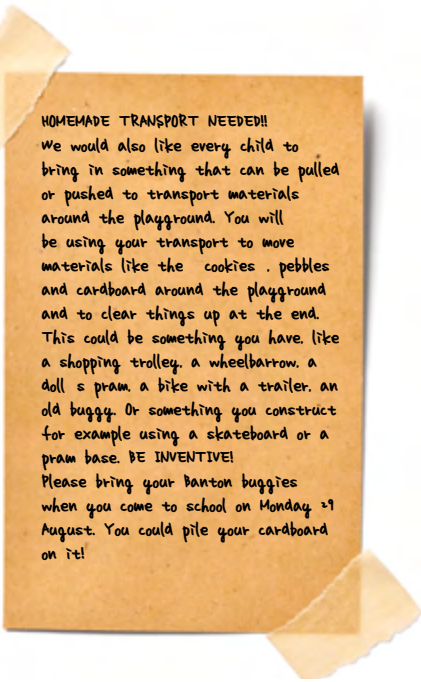 HOMEMADE TRANSPORT NEEDED!!
We would also like every child to
bring in something that can be pulled
or pushed to transport materials
around the playground. You will
be using your transport to move
materials like the cookies , pebbles
and cardboard around the playground
and to clear things up at the end.
This could be something you have, like
a shopping trolley, a wheelbarrow, a
doll s pram, a bike with a trailer, an
old buggy. Or something you construct
for example using a skateboard or a
pram base. BE INVENTIVE!
Please bring your Banton buggies
when you come to school on Monday 29
August. You could pile your cardboard
on it!